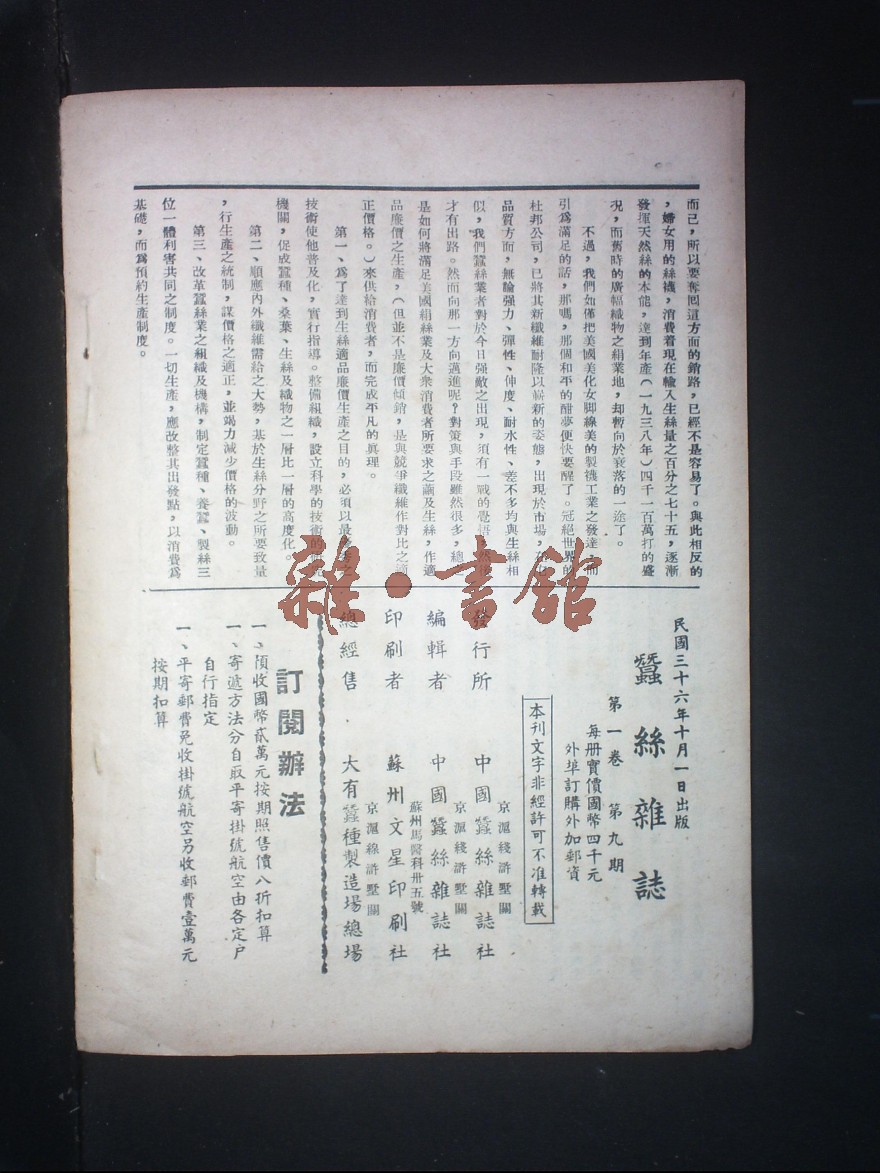 而已，所以要奪回這方面的銷路，已經不是容易了。與此相反的
，婦女用的絲襪，消費着現在輸入生絲量之百分之七十五，逐漸
發揮天然絲的本能，達到年產（一九三八年）四千一百萬打的盛
况，而舊時的廣幅織物之絹業地，却暫向於衰落的一途了。
不過，我們如僅把美國美化女脚線美的製襪工業之發達，而
引爲滿足的話，那嗎，那個和平的酣夢便快要醒了。冠絕世界的
杜邦公司，已將其新纖維耐隆以嶄新的姿態，出現於市場，在
品質方面，無論强力、彈性、伸度、耐水性、差不多均與生絲相
似，我們蠶絲業者對於今日强敵之出現，須有一戰的覺悟，然後
才有出路。然而向那一方向邁進呢？對策與手段雖然很多，總
是如何將滿足美國絹絲業及大衆消費者所要求之繭及生絲，作適
品廉價之生產，（但並不是廉價傾銷，是與競爭纖維作對比之適
正價格。）來供給消費者，而完成平凡的眞理。
第一、爲了達到生絲適品廉價生產之目的，必須以最
技術使他普及化，實行指導。整備組織，設立科學的技術的
機關，促成蠶種、桑葉、生絲及織物之一層比一層的高度化。
第二、順應內外纖維需給之大勢，基於生絲分野之所要致量
，行生產之統制，謀價格之適正，並竭力減少價格的波動。
第三、改革蠶絲業之組織及機構，制定蠶種、養蠶、製絲三
位一體利害共同之制度。一切生產，應改整其出發點，以消費爲
基礎，而爲預約生產制度。
雜·書館
民國三十六年十月一日出版
蠶絲雜誌
第一卷 第九期
每册實價國幣四千元
外埠訂購外加郵資
本刊文字非經許可不准轉載
京滬綫滸墅關
發行所 中國蠶絲雜誌社
京滬綫滸墅關
編輯者 中國蠶絲雜誌社
蘇州馬醫科卅五號
印刷者 蘇州文星印刷社
京滬線滸墅關
總經售 大有蠶種製造場總場
訂閱辦法
一、預收國幣貳萬元按期照售價八折扣算
一、寄遞方法分自取平寄掛號航空由各定户
自行指定
一、平寄郵費免收掛號航空另收郵費壹萬元
按期扣算